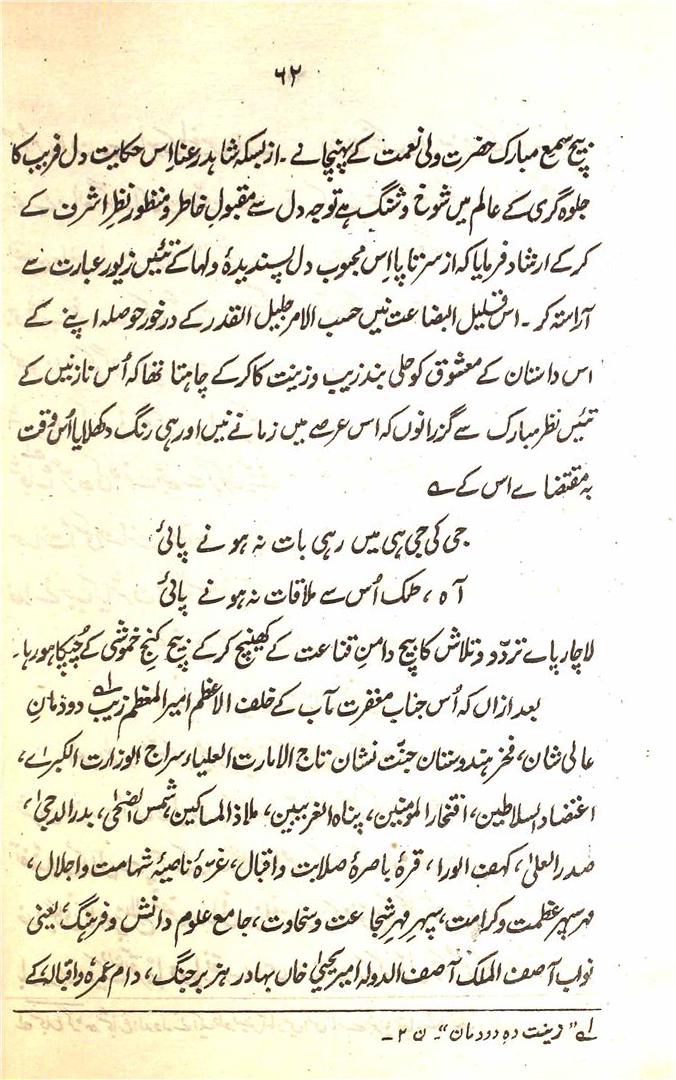 ۶۲
بیچ سمع مبارک حضرت ولی نعمت کے پہنچانے ۔ از بسکہ شاہد رعنا اس حکایت دل فریب کا
جلوہ گری کے عالم میں شوخ و شنگ ہے توجہ دل سے مقبولِ خاطر و منظورِ نظرِ اشرف کے
کر کے ارشاد فرمایا کہ از سر تا پا اِس محبوب دل پسندیدۂ دلہا کے تئیں زیور عبارت سے
آراستہ کر ۔ اس قلیل البضاعت نیں حسب الامر جلیل القدر کے درخور حوصلہ اپنے کے
اس داستان کے معشوق کو حلی بند زیب و زینت کا کر کے چاہتا تھا کہ اُس نازنیں کے
تئیں نظر مبارک سے گزرانوں کہ اس عرصے میں زمانے نیں اور ہی رنگ دکھلایا اُس وقت
بہ مقتضاے اس کے ؎
جی کی جی ہی میں رہی بات نہ ہونے پائی
آہ ، ٹک اُس سے ملاقات نہ ہونے پائی
لاچار پاے تردّد و تلاش کا بیچ دامنِ قناعت کے کھینچ کر کے بیچ کنج خموشی کے چپکا ہو رہا ۔
بعد ازاں کہ اُس جناب مغفرت مآب کے خلف الاعظم امیر المعظم زیب ۱؎ دودمانِ
عالی شان، فخرِ ہندوستان جنّت نشان تاج الامارت العلیاء سراج الوزارت الکبرٰے،
اعتضاد السلاطین، افتخار المومنین، پناہ الغریبین، ملاذ المساکین، شمس الضحیٰ، بدر الدجیٰ،
صدر العلیٰ، کہف الورا، قرۂ باصرۂ صلابت و اقبال، غرّۂ ناصیۂ شہامت و اجلال،
مہرِ سپہرِ عظمت و کرامت، سپہرِ مہرِ شجاعت و سخاوت، جامع علوم دانش و فرہنگ، یعنی
نواب آصف الملک آصف الدولہ امیر یحییٰ خاں بہادر ہزبر جنگ، دام عمرہٗ و اقبالہٗ کے
۱؎ "زینت دہِ دودمان"۔ ن ۲ ۔